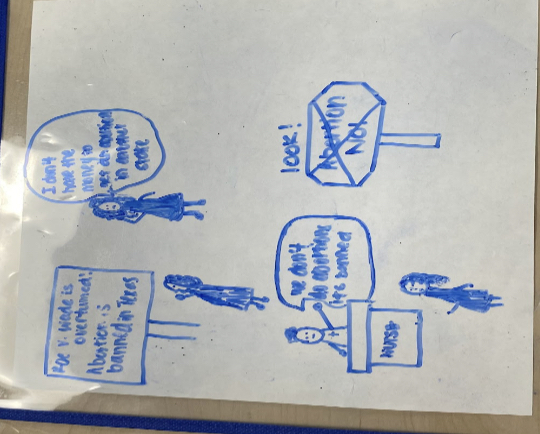 Roe v. Wade is
overturned!
Abortion is
banned in Texas
I don't
have the
money to
get an abortion
in another
state
we don't
do abortions
it's banned
NURSE
look!
Abortion
NO!